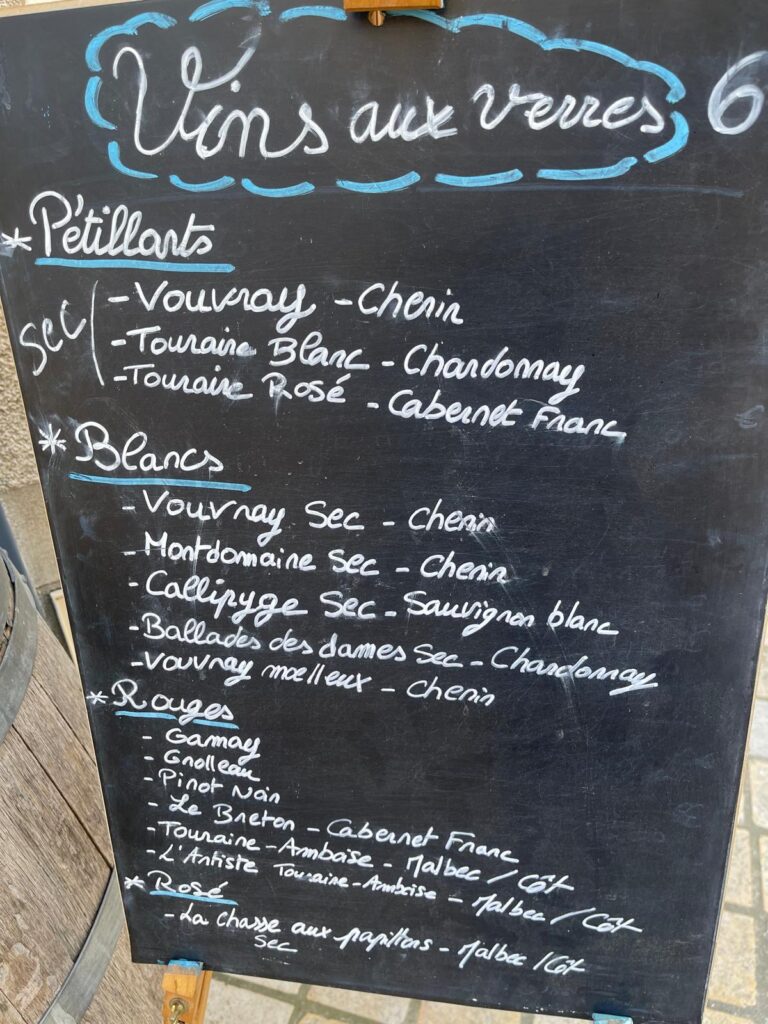 Vins aux verres 6
* Pétillants
Sec
- Vouvray - Chenin
- Touraine Blanc - Chardonnay
- Touraine Rosé - Cabernet Franc
* Blancs
- Vouvray Sec - Chenin
- Montdomaine Sec - Chenin
- Callipyge Sec - Sauvignon blanc
- Ballades des dames Sec - Chardonnay
- Vouvray moelleux - Chenin
* Rouges
- Gamay
- Grolleau
- Pinot Noir
- Le Breton - Cabernet Franc
- Touraine-Amboise - Malbec / Côt
- L'Artiste Touraine-Amboise - Malbec / Côt
* Rosé
- La chasse aux papillons - Malbec / Côt
Sec